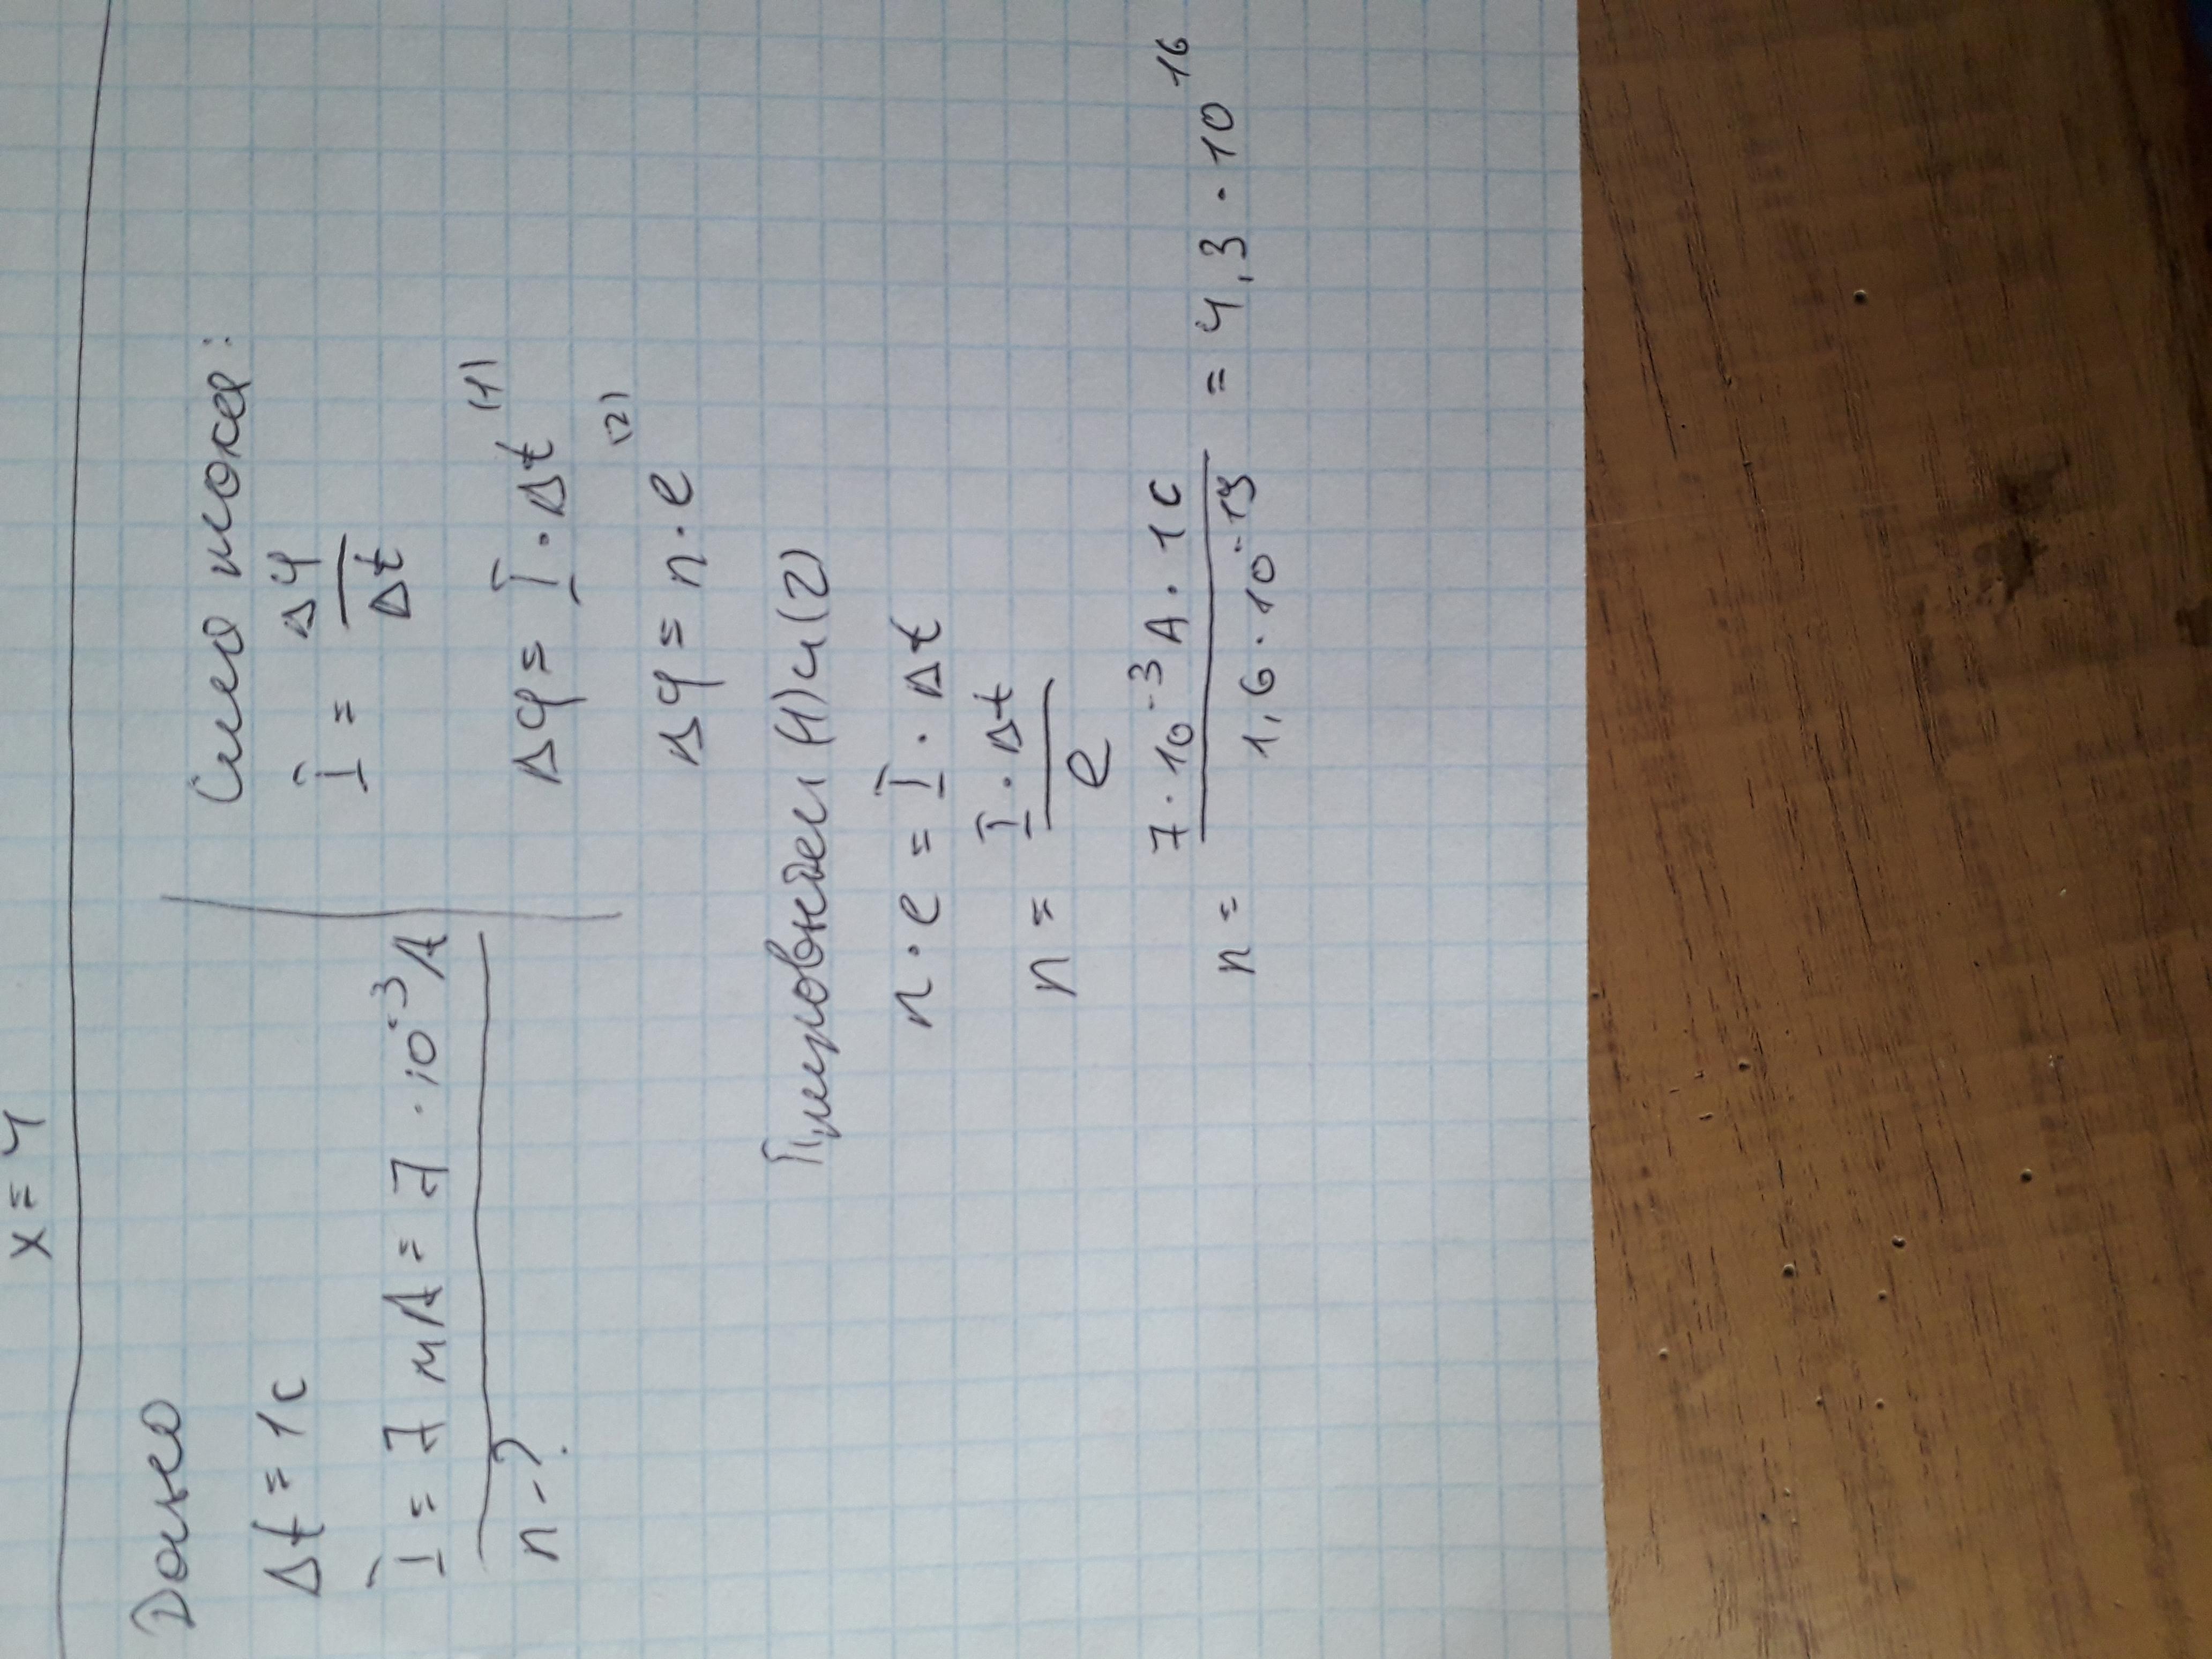 x = 4
Дано
Δt = 1с
I = 7 мА = 7 · 10⁻³ А
n - ?
Сила тока:
I = Δq / Δt
Δq = I · Δt (1)
Δq = n · e (2)
Приравняем (1) и (2)
n · e = I · Δt
n = I · Δt / e
n = 7 · 10⁻³ А · 1с / 1,6 · 10⁻¹⁹ = 4,3 · 10¹⁶